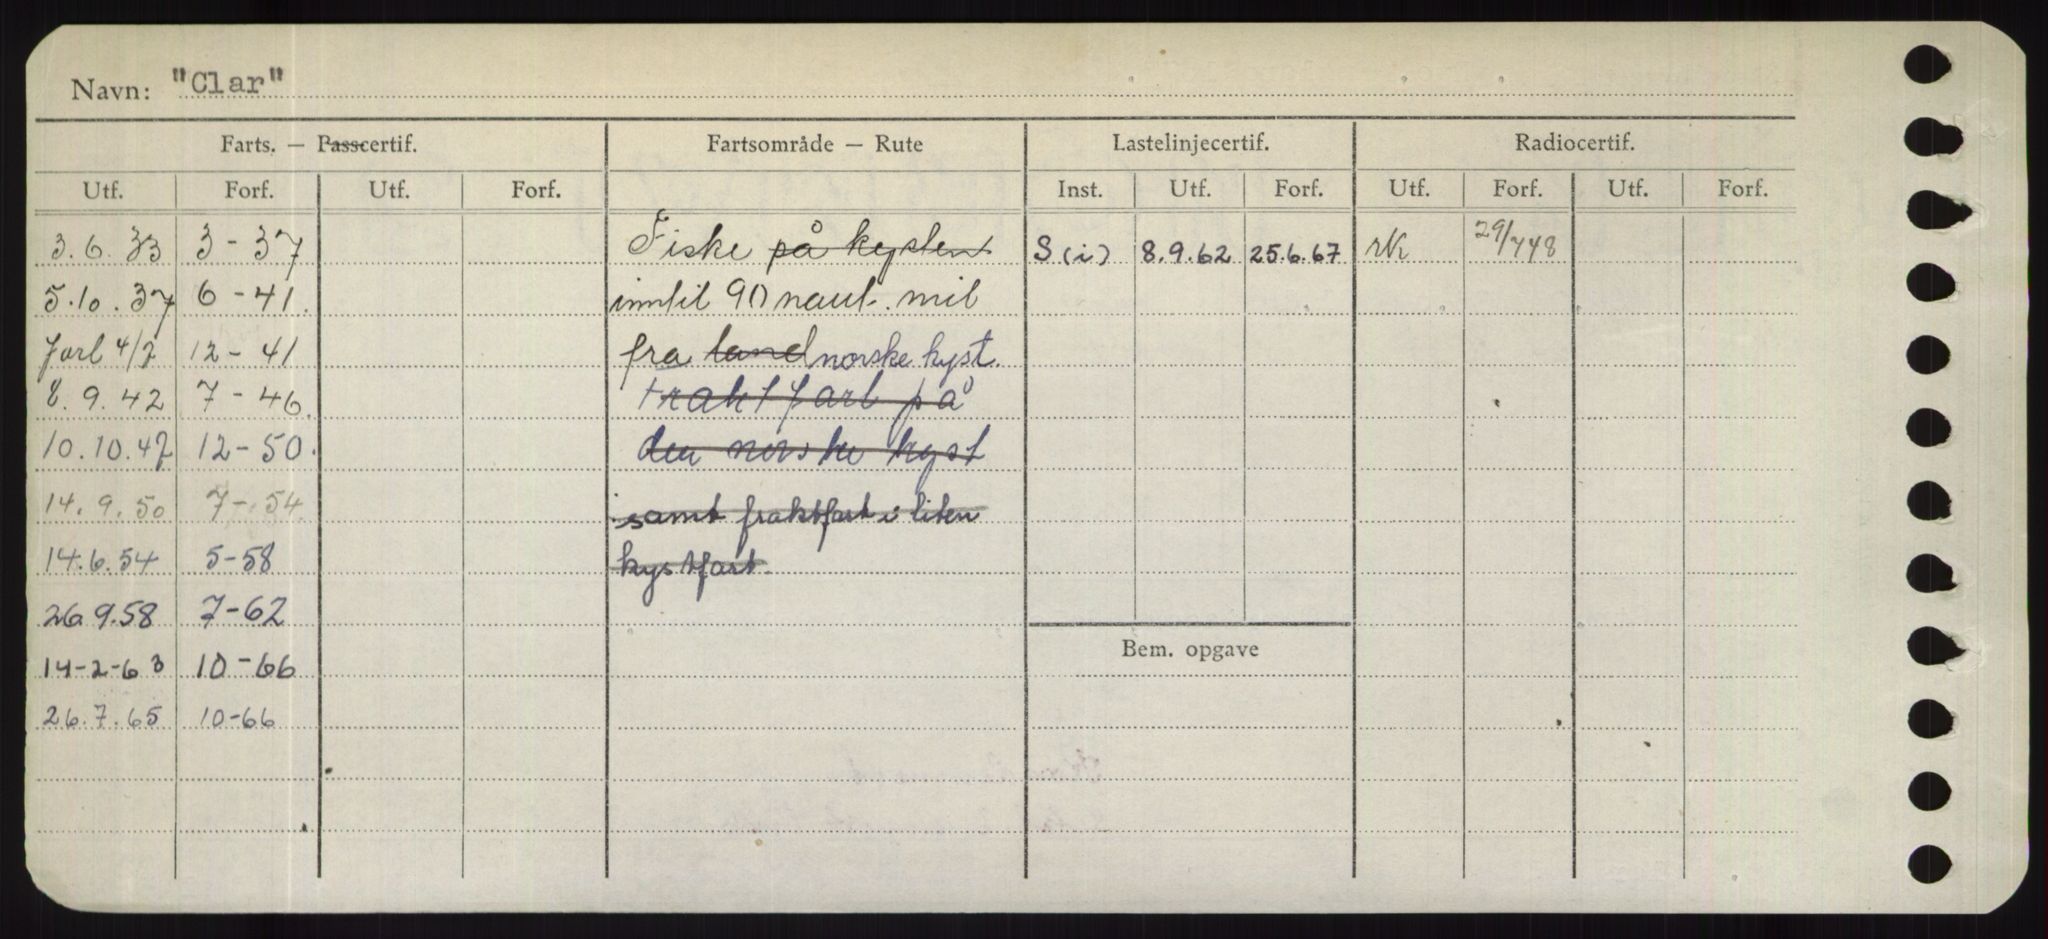 Navn: "Clar"
Farts. — Passcertif. Fartsområde — Rute Lastelinjecertif. Radiocertif.
Utf. Forf. Utf. Forf. Inst. Utf. Forf. Utf. Forf. Utf. Forf.
3.6.33 3-37 Fiske på kysten S(i) 8.9.62 25.6.67 29/7 48
5.10.37 6-41. inntil 90 naut. mil
4/7 12-41 fra land norske kyst.
8.9.42 7-46. fraktfart på
10.10.47 12-50. den norske kyst
14.9.50 7-54. samt fraktfart i liten
14.6.54 5-58 kystfart.
26.9.58 7-62
Bem. opgave
14-2-63 10-66
26.7.65 10-66